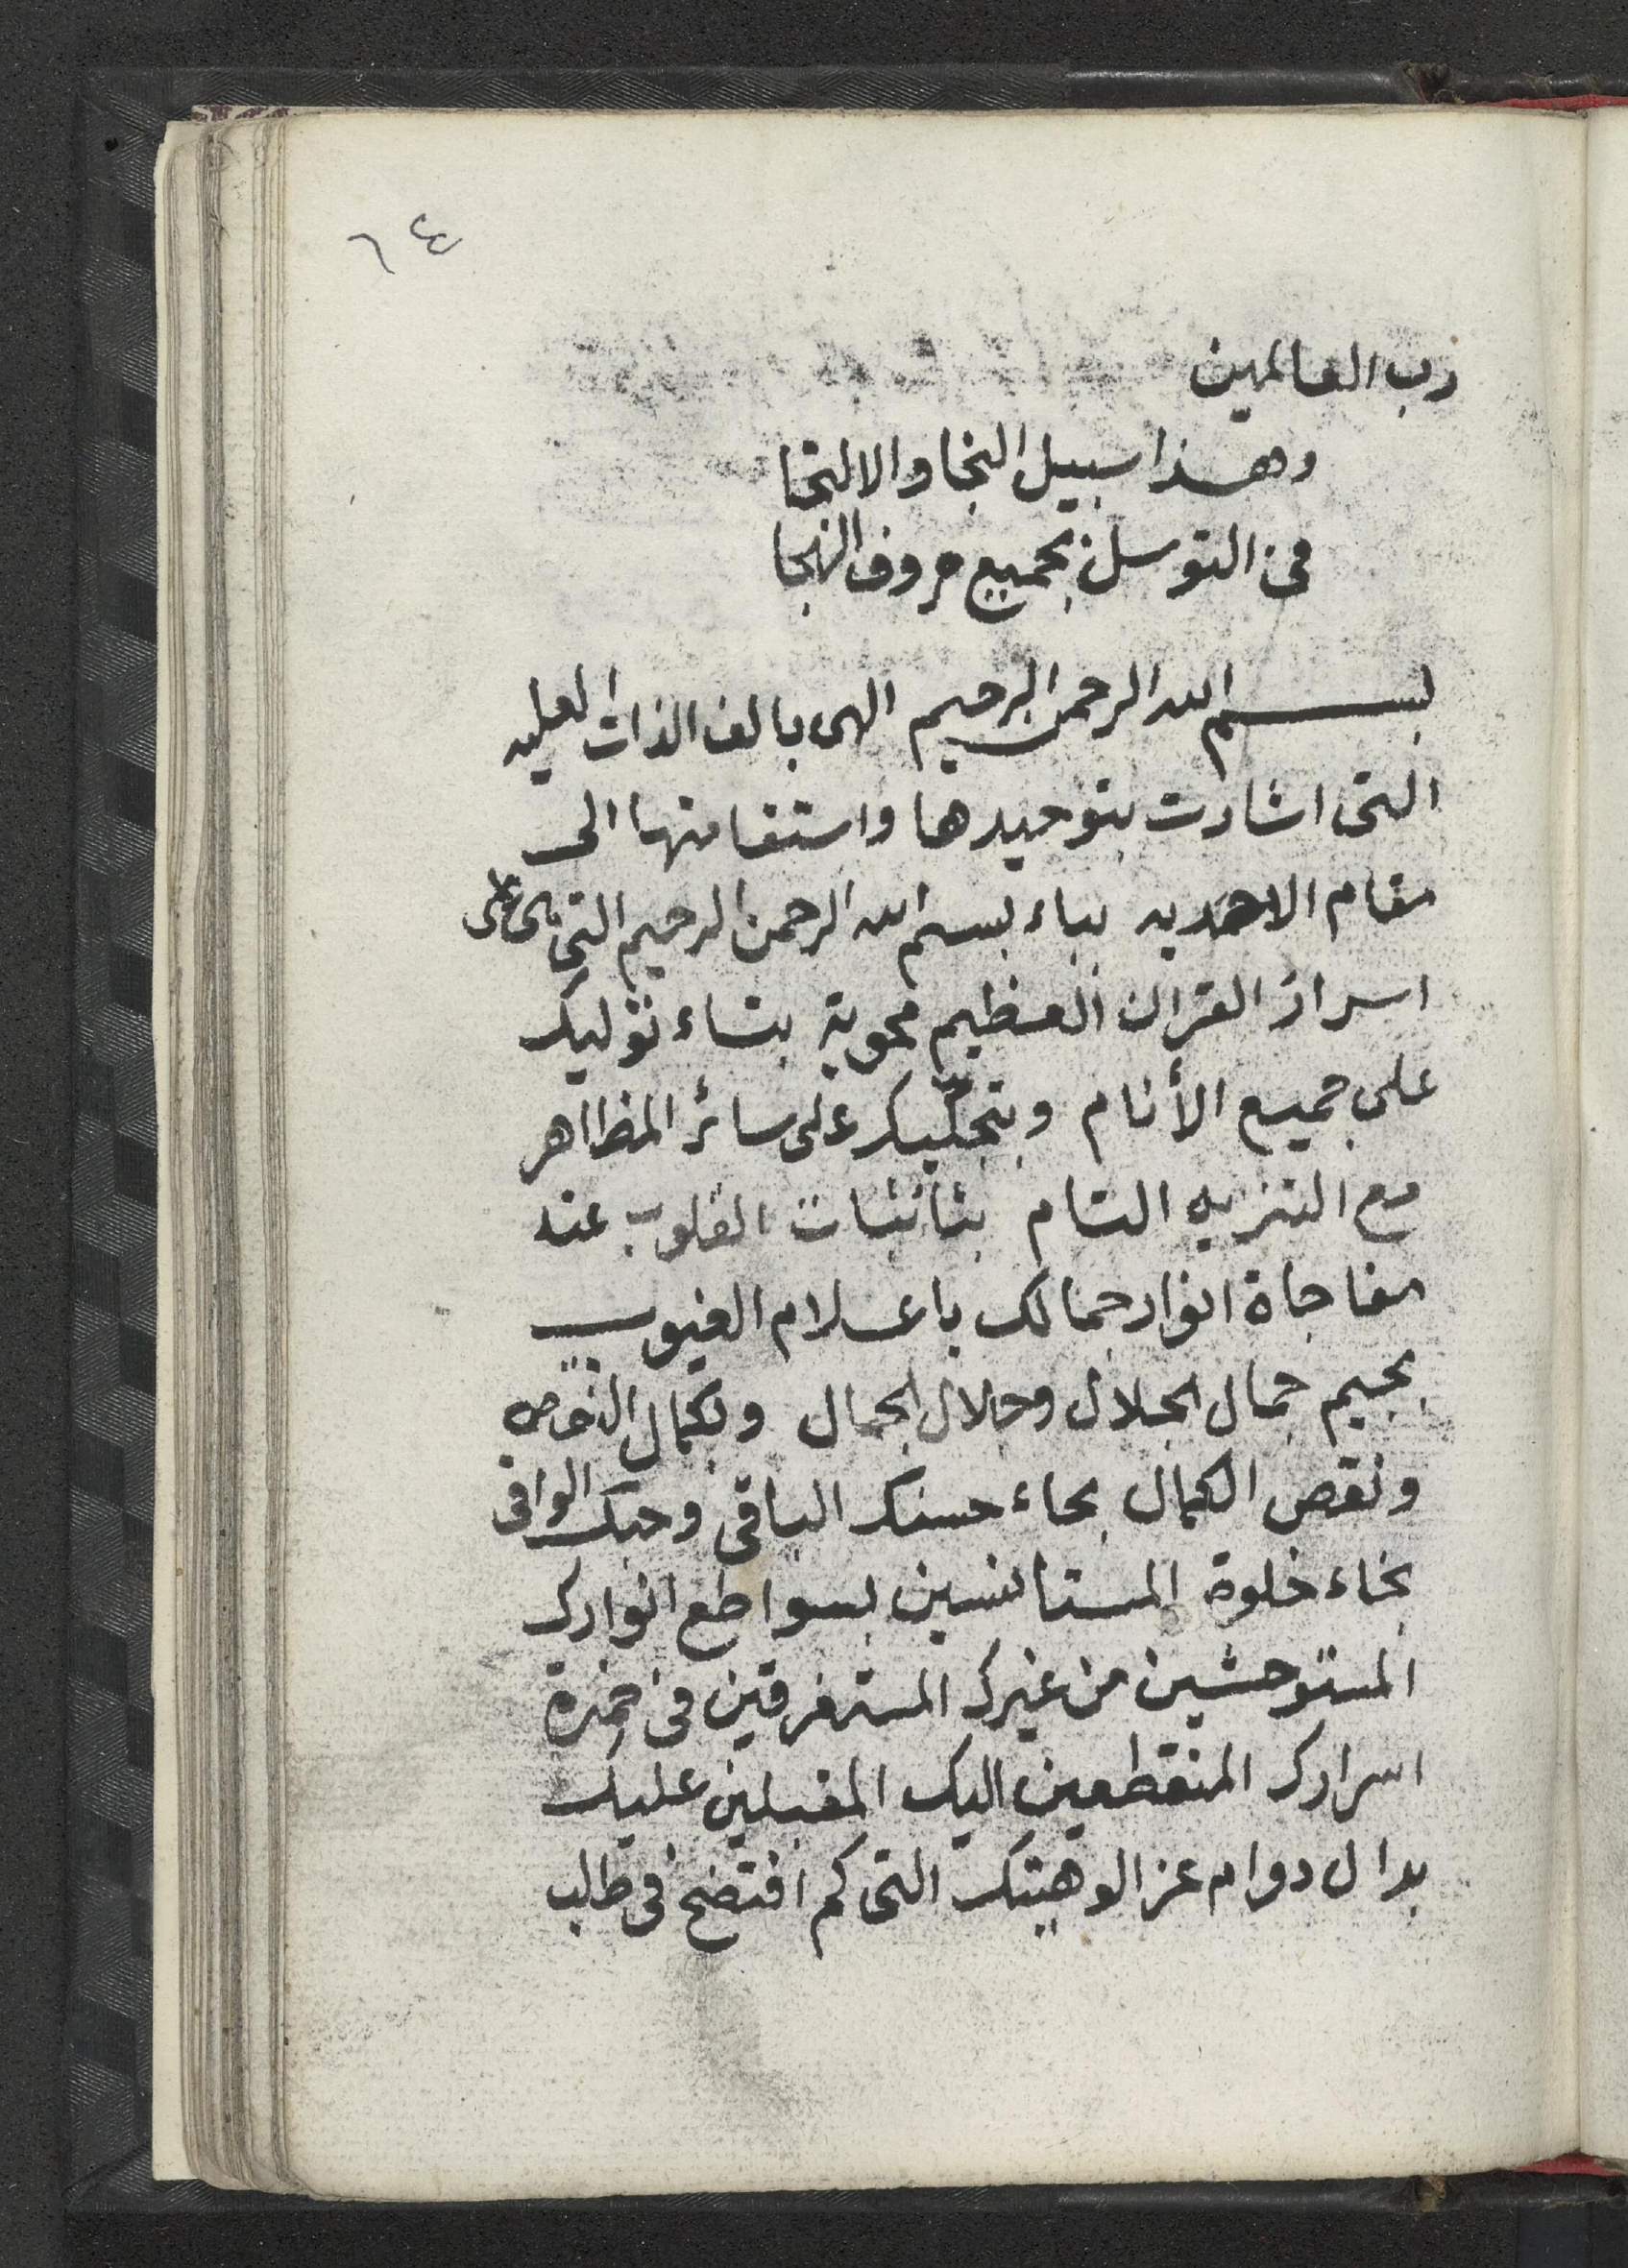 ٦٤
رب العالمين
وهذا سبيل النجا والالتجا
في التوسل بجميع حروف الهجا
بسم الله الرحمن الرحيم الهى بالف الذات العليه
التى اشارت بتوحيدها واستقامتها الى
مقام الاحديه بباء بسم الله الرحمن الرحيم التي هى على
اسرار القران العظيم محوية بتاء توليك
على جميع الأنام وبتجلّيك على سائر المظاهر
مع التنزيه التام بثاثبات القلوب عند
مفاجاة انوار جمالك باعلام الغيوب
بجيم جمال الجلال وجلال الجمال وبكمال النقص
ونقص الكمال بحاء حسنك الباقى وحبك الوافى
بخاء خلوة المستانسين بسواطع انوارك
المستوحشين من غيرك المستغرقين فى خمرة
اسرارك المنقطعين اليك المقبلين عليك
بدال دوام عز الوهيتك التى كم افتضح فى طلب